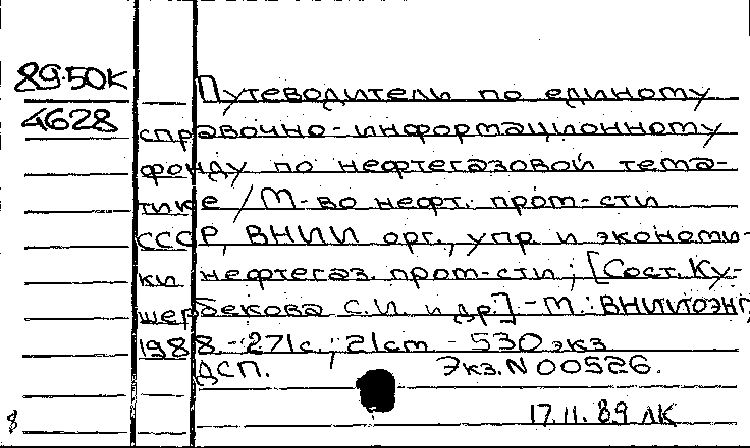 89-50К
4628
Путеводитель по единому
справочно-информационному
фонду по нефтегазовой тема-
тике / М-во нефт. пром-сти
СССР, ВНИИ орг., упр. и экономи-
ки нефтегаз. пром-сти; [Сост. Ку-
шербекова С.И. и др.] - М.: ВНИИОЭНГ,
1988. - 271 с.; 21 см - 530 экз
ДСП. Экз. N 00526.
17.11.89 ЛК
8